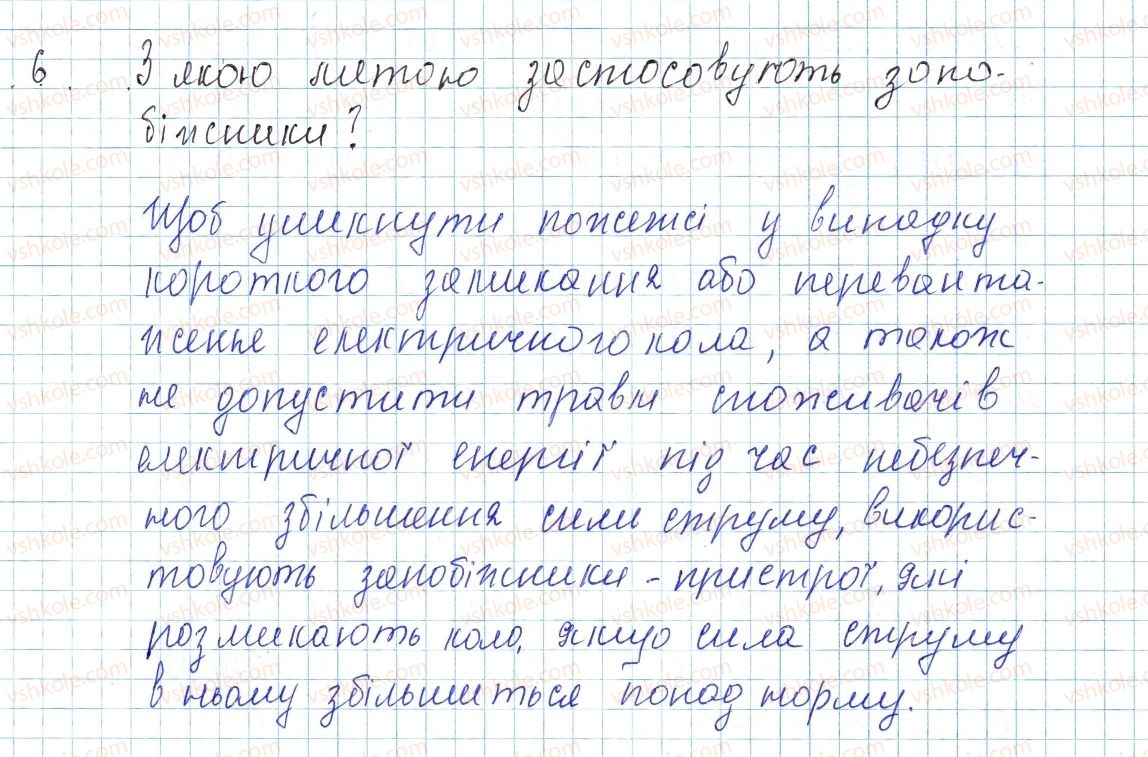 6. З якою метою застосовують запо-
біжники?
Щоб уникнути пожежі у випадку
короткого замикання або переванта-
женне електричного кола, а також
не допустити травм споживачів
електричної енергії під час небезпеч-
ного збільшення сили струму, викорис-
товують запобіжники - пристрої, які
розмикають коло, якщо сила струму
в ньому збільшиться понад норму.